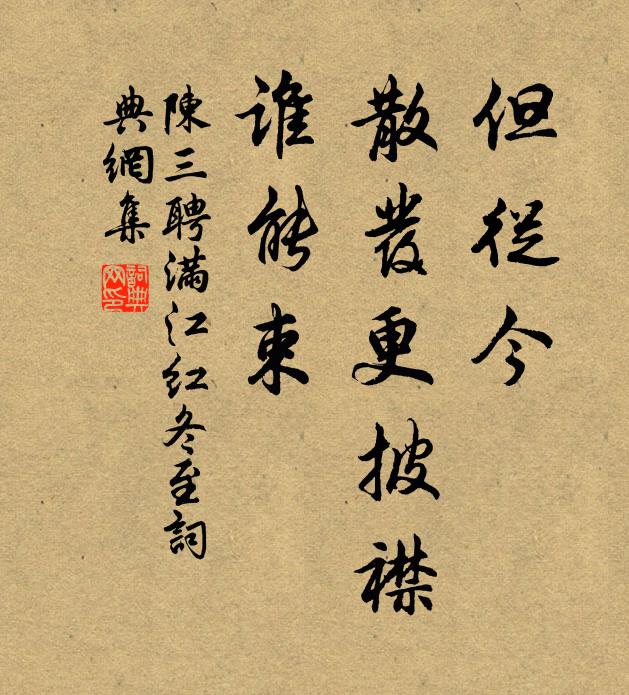 但從今
散發更披襟
誰能束
陳三聘滿江紅冬至詞
典網集
詞典網印